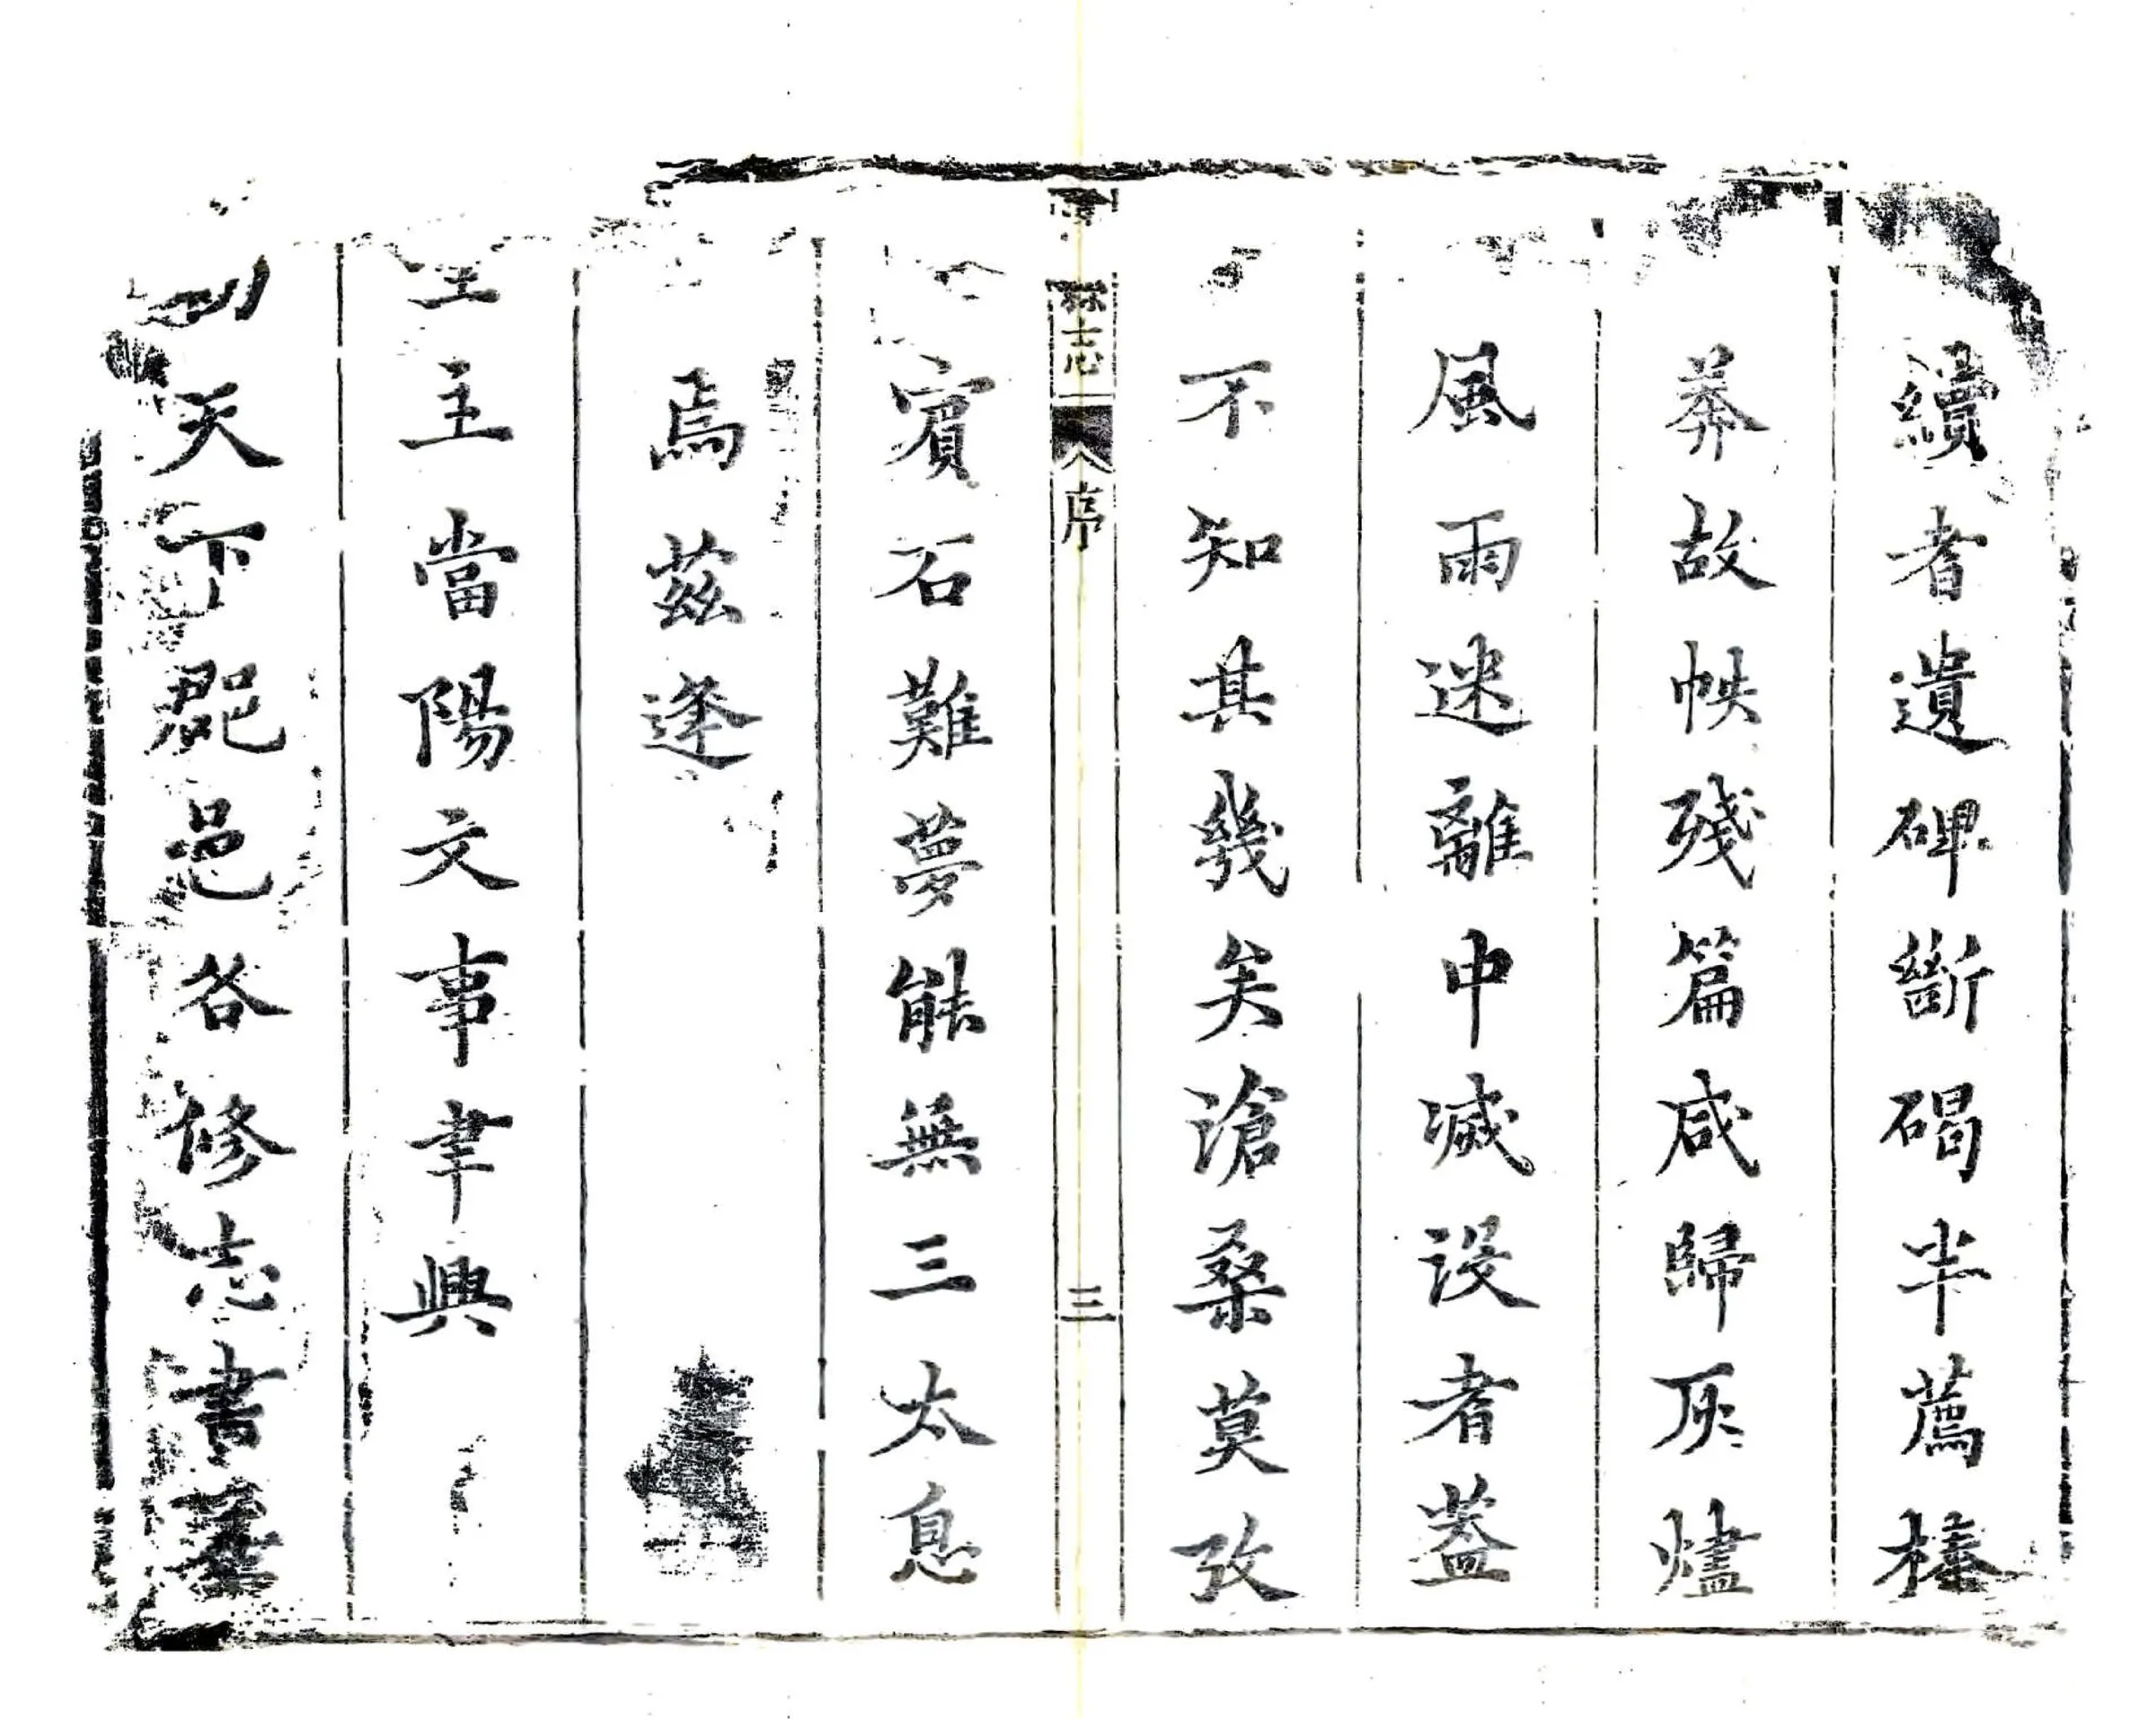 續者遺碑斷碣半薦榛
莽故帙殘篇咸歸灰燼
風雨迷離中滅沒者蓋
不知其幾矣滄桑莫攷
志 序 三
賓石難夢能無三太息
焉茲逢
主當陽文事聿興
天下郡邑各修志書